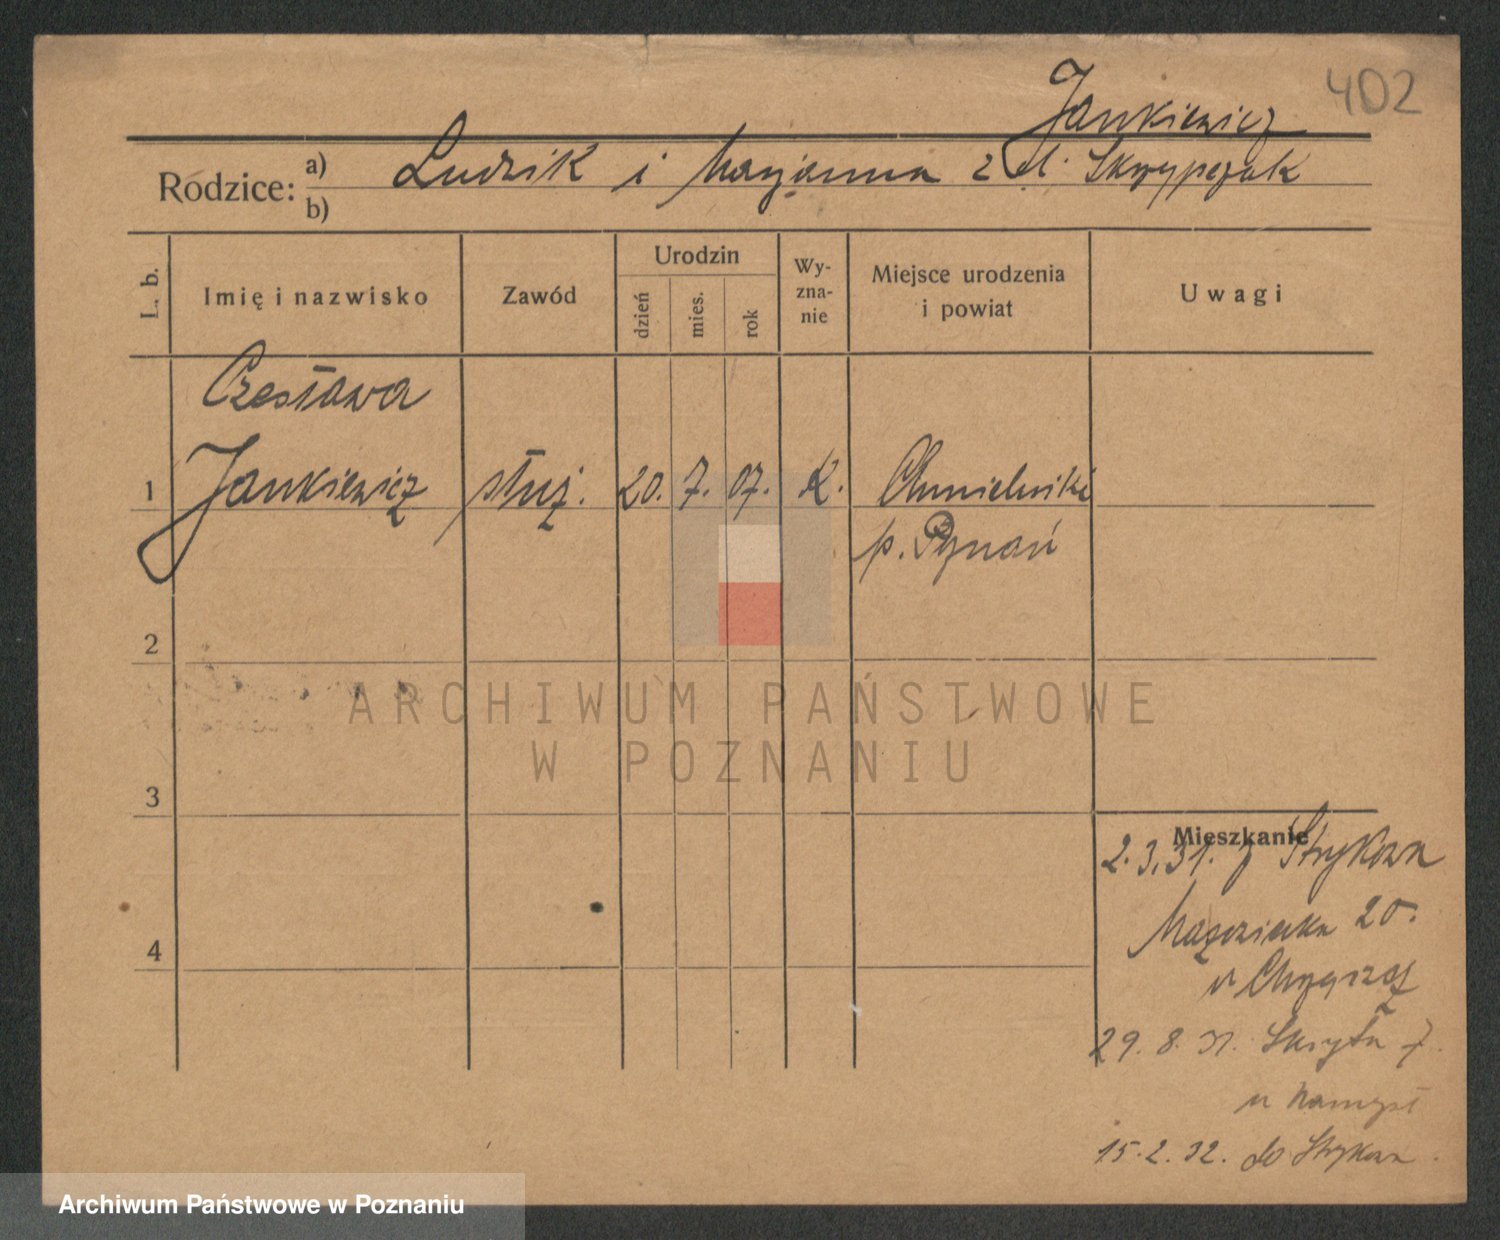 402
Jankiewicz
Rodzice: a) Ludwik i Marjanna z d. Skrzypczak
b)
L. b.
Imię i nazwisko
Zawód
Urodzin
dzień
mies.
rok
Wy-
zna-
nie
Miejsce urodzenia
i powiat
Uwagi
Czesława
1 Jankiewicz służ. 20. 7. 07. K.
p. Poznań
2
3
4
Mieszkanie
2.3.31. z Strykowa
20.
u
29. 8. 31. Skryta 7.
u
15.2.32. do Strykowa
ARCHIWUM PAŃSTWOWE
W POZNANIU
Archiwum Państwowe w Poznaniu